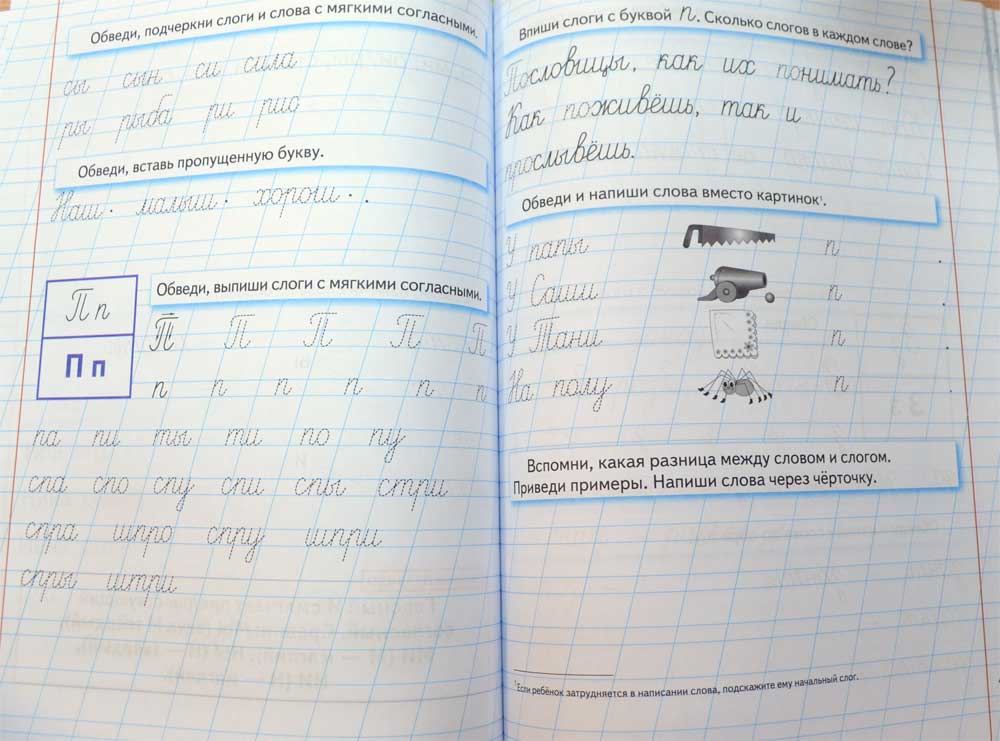 Обведи, подчеркни слоги и слова с мягкими согласными.
сы сын си сила
ры рыба ри рис
Обведи, вставь пропущенную букву.
Наш. малыш. хорош. .
П п
П п
Обведи, выпиши слоги с мягкими согласными.
П П П П П
п п п п п п
па пи ты ти по пу
спа спо спу спи спы стри
спра шпро спру шпри
спры штри
Впиши слоги с буквой п. Сколько слогов в каждом слове?
Пословицы, как их понимать?
Как поживёшь, так и
прослывёшь.
Обведи и напиши слова вместо картинок¹.
У папы п .
У Саши п .
У Тани п .
На полу п .
Вспомни, какая разница между словом и слогом.
Приведи примеры. Напиши слова через чёрточку.
¹Если ребёнок затрудняется в написании слова, подскажите ему начальный слог.